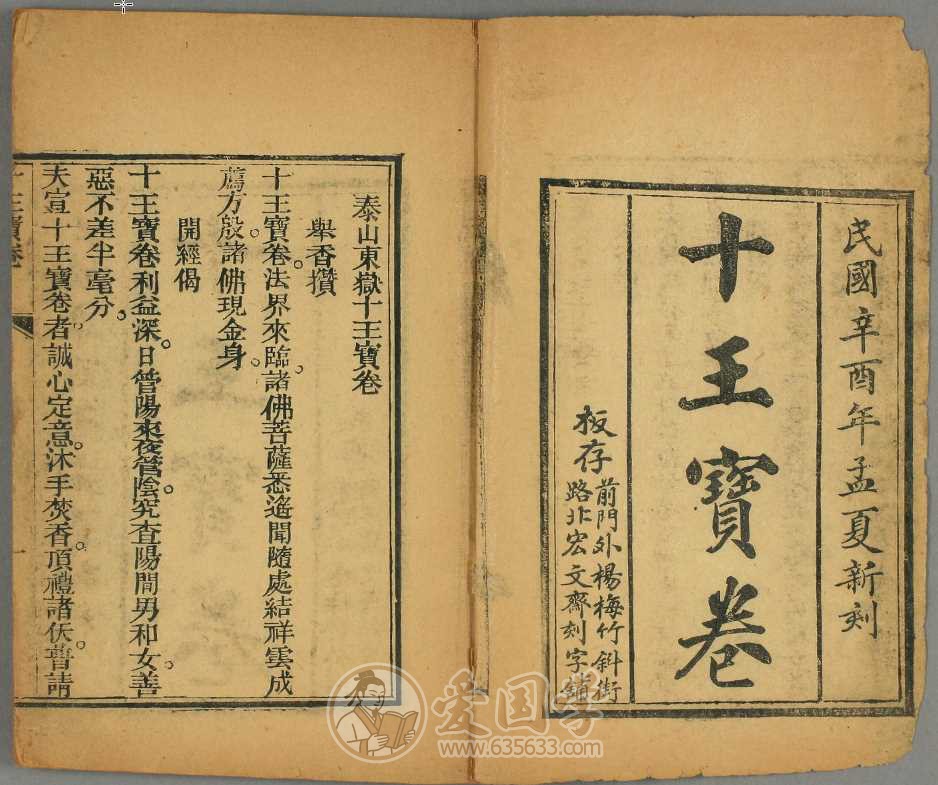 民國辛酉年孟夏新刻
十王寶卷
板存前門外楊梅竹斜街
路北宏文齋刻字鋪
泰山東嶽十王寶卷
舉香讚
十王寶卷。法界來臨。諸佛菩薩悉遙聞隨處結祥雲成
薦方殷。諸佛現金身
開經偈
十王寶卷利益深。日管陽來夜管陰。究查陽間男和女。善
惡不差半毫分。
夫宣十王寶卷者。誠心定意。沐手焚香。頂禮諸仸。普請
十王寶卷
一
爱国学
www.635633.com